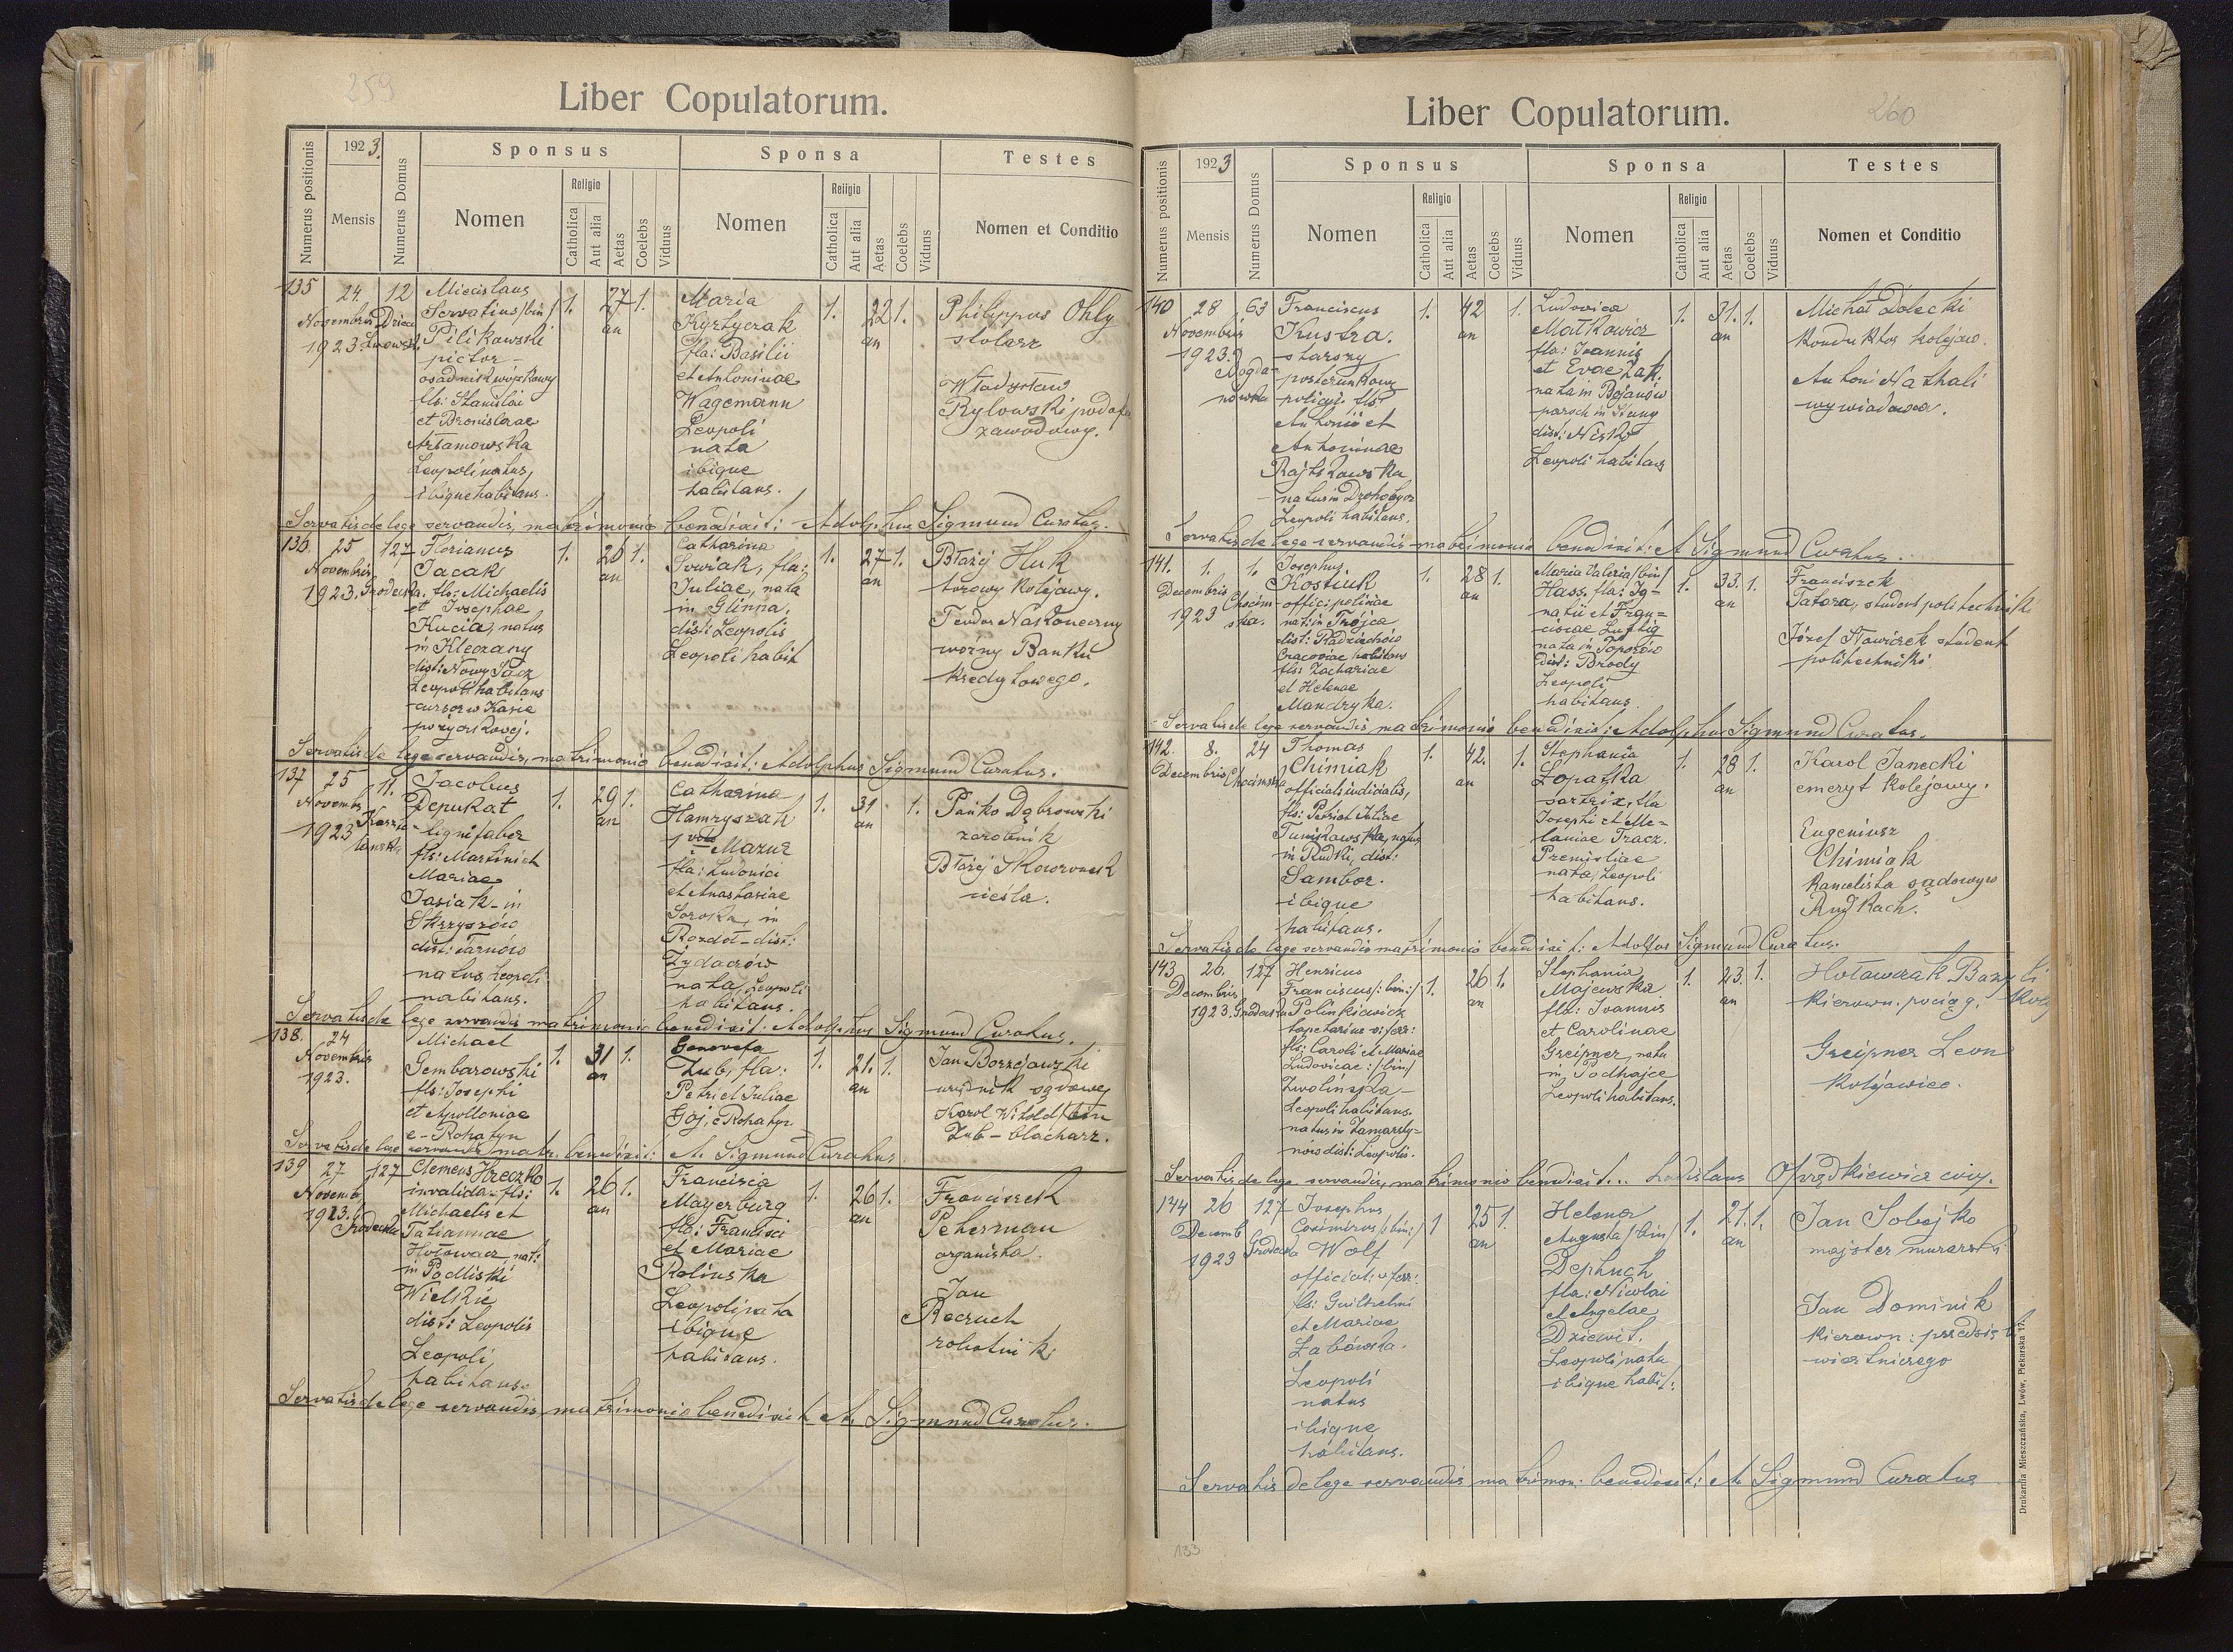 259
Liber Copulatorum.
Numerus positionis
1923.
Mensis
Numerus Domus
Sponsus
Nomen
Religio
Catholica
Aut alia
Aetas
Coelebs
Viduus
Sponsa
Nomen
Religio
Catholica
Aut alia
Aetas
Coelebs
Viduus
Testes
Nomen et Conditio
135
24.
Novembris
1923.
12
Miecislaus
Servatius /bin/
Pilikowski
pictor –
fls: Stanislai
et Bronislavae
Artamowska
Leopoli natus,
ibique habitans.
1.
27
an
1.
Maria
Kyrtyczak
fla: Basilii
et Antoninae
Wagemann
Leopoli
nata
ibique
habitans.
1.
22
an
1.
Philippus Ohly
stolarz
Władysław
Rylowski
zawodowy.
Servatis de lege servandis, matrimonio benedixit: Adolphus Sigmund Curatus.
136.
25
Novembris
1923.
127
Grodecka.
Florianus
Jacak
fls: Michaelis
et Josephae
Kucia, natus
in Kleczany
dist: Nowy Sącz
Leopoli habitans
cursor w Kasie
pożyczkowej.
1.
26
an
1.
Catharina
Sowiak, fla:
Juliae, nata
in Glinna,
dist: Leopolis
Leopoli habit
1.
27
an
1.
Błażej Huk
torowy kolejowy.
Teodor Nakoneczny
woźny Banku
kredytowego.
Servatis de lege servandis, matrimonio benedixit: Adolphus Sigmund Curatus.
137
25
Novembr
1923
11.
Jacobus
Depukat
lignifaber
fls: Martini et
Mariae
Jasiak – in
Skrzyszów
dist: Tarnów
natus, Leopoli
habitans.
1.
29
an
1.
Catharina
Hamryszak
Mazur
fla: Ludovici
et Anastasiae
Soroka, in
Rozdoł – dist:
Żydaczów
nata, Leopoli
habitans.
1.
31
an
1.
Pańko Dąbrowski
zarobnik
Błażej Skowronek
cieśla.
Servatis de lege servandis matrimonio benedixit: Adolphus Sigmund Curatus.
138.
24
Novembris
1923.
Michael
Gembarowski
fls: Josephi
et Apolloniae
e – Rohatyn
1.
31
an
1.
Genovefa
Zub, fla:
Petri et Juliae
Goj, e Rohatyn
1.
21.
an
1.
Jan
Karol Witold /bin
Zub – blacharz.
Servatis de lege servandis matr. benedixit: A. Sigmund Curatus
139
27
Novemb.
1923.
127
Grodecka
Clemens Hreczko
invalida – fls:
Michaelis et
Tatiannae
Hołowacz, nat:
in Podliski
Wielkie
dist: Leopolis
Leopoli
habitans.
1.
26
an
1.
Francisca
Mayerburg
fla: Francisci
et Mariae
Rolinska
Leopoli nata
ibique
habitans.
1.
26
an
1.
Franciszek
Peherman
organista.
Jan
Recruch
robotnik
Servatis de lege servandis matrimonio benedixit A. Sigmund Curatus.
260
Liber Copulatorum.
Numerus positionis
1923
Mensis
Numerus Domus
Sponsus
Nomen
Religio
Catholica
Aut alia
Aetas
Coelebs
Viduus
Sponsa
Nomen
Religio
Catholica
Aut alia
Aetas
Coelebs
Viduus
Testes
Nomen et Conditio
140
28
Novembris
1923.
63
Bogda-
nówka
Franciscus
Kustra.
starszy
posterunkowy
policyi. fls:
Antonii et
Antoninae
Rajtkowska
natus in Drohobycz
Leopoli habitans.
1.
42
an
1.
Ludovica
Matkowicz
fla: Joannis
et Evae Żak.
nata in Bojanów
paroch in Stany
dist: Nisko
Leopoli habitans
1.
31.
an
1.
Michał Dolecki
konduktor kolejow.
Antoni Nathali
wywiadowca.
Servatis de lege servandis matrimonio benedixit: A Sigmund Curatus.
141.
1.
Decembris
1923
1.
Chocim-
ska.
Josephus
Kostiuk
offic: policiae
nat: in Trojca
dist: Radziechów
Cracoviae habitans
fls: Zachariae
et Helenae
Mandryka.
1.
28
an
1.
Maria Valeria /bin/
Hass. fla: Ig-
natii et Fran-
ciscae Luftig
nata in Toporów
dist: Brody
Leopoli
habitans.
1.
33.
an
1.
Franciszek
Tatara, student politechniki
Józef Stawiczek student
politechniki
Servatis de lege servandis matrimonio benedixit: Adolphus Sigmund Curatus.
142.
8.
Decembris
24
Chocimska
Thomas
Chimiak
officialis iudicialis,
fls: Petri et Juliae
Tuniskawska, natus
in Rudki, dist:
Sambor.
ibique
habitans.
1.
42.
an
1.
Stephania
Łopatka
sartrix, fla
Josephi et Me-
laniae Tracz.
Premisliae
nata, Leopoli
habitans.
1.
28
an
1.
Karol Janecki
emeryt kolejowy.
Eugeniusz
Chimiak
kancelista sądowy w
Rudkach.
Servatis de lege servandis matrimonio benedixit: Adolfus Sigmund Curatus.
143
26.
Decembris
1923.
127
Grodecka
Henricus
Franciscus /:bin:/
Polinkiewicz
tapetarius v: ferr:
fls: Caroli et Mariae
Ludovicae: /bin/
Zwolińska –
Leopoli habitans.
natus in Zamarsty-
nów dist: Leopolis.
1.
26
an
1.
Stephania
Majewska
fla: Joannis
et Carolinae
Greipner, nata
in Podhajce
Leopoli habitans.
1.
23.
an
1.
Hołowczak Bazyli
kierown. pociąg. kolej
Greipner Leon
Kolejowiec.
Servatis de lege servandis, matrimonio benedixit... Ladislaus Oprządkiewicz
144
26
Decemb
1923
127
Grodecka
Josephus
Casimirus /:bin:/
Wolf
official: v: ferr:
fls: Guilhelmi
et Mariae
Żabówska.
Leopoli
natus
ibique
habitans.
1
25
an
1.
Helena
Augusta /bin/
Deptuch
fla: Nicolai
et Angelae
Dziewit.
Leopoli nata
ibique habit:
1.
21.
an
1.
Jan Sobejko
majster murarski
Jan Dominik
kierown:
wiertniczego
Servatis de lege servandis matrimon: benedixit: A. Sigmund Curatus
Drukarnia Mieszczańska, Lwów, Piekarska 17.
133